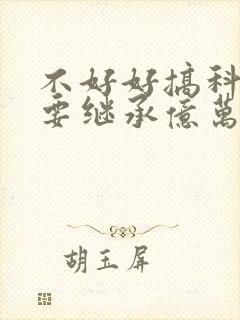 不好好搞科
要继承億萬
胡玉屏